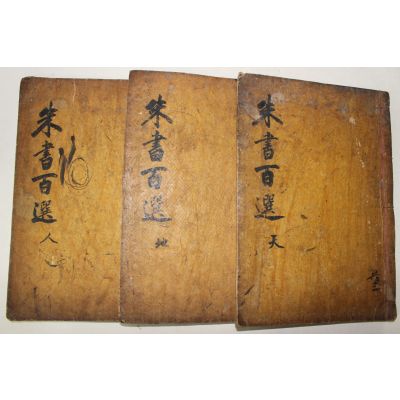 朱書百選 天
朱書百選 地
朱書百選 人